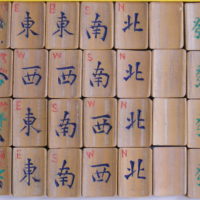 E E S N
東 東 南 北
W W S N
西 西 南 北
E S W N
東 南 西 北
E S W N
東 南 西 北